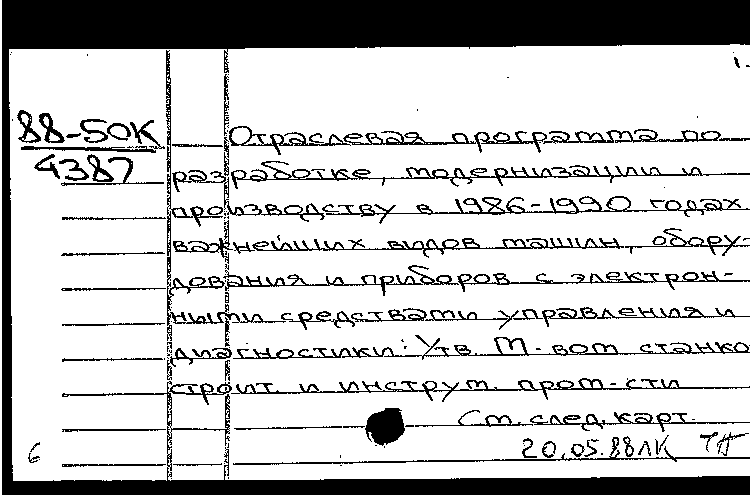 1.
88-50К
4387
Отраслевая программа по
разработке, модернизации и
производству в 1986-1990 годах
важнейших видов машин, обору-
дования и приборов с электрон-
ными средствами управления и
диагностики: Утв. М-вом станко
строит. и инструм. пром-сти
См. след. карт.
20.05.88 ЛК
6